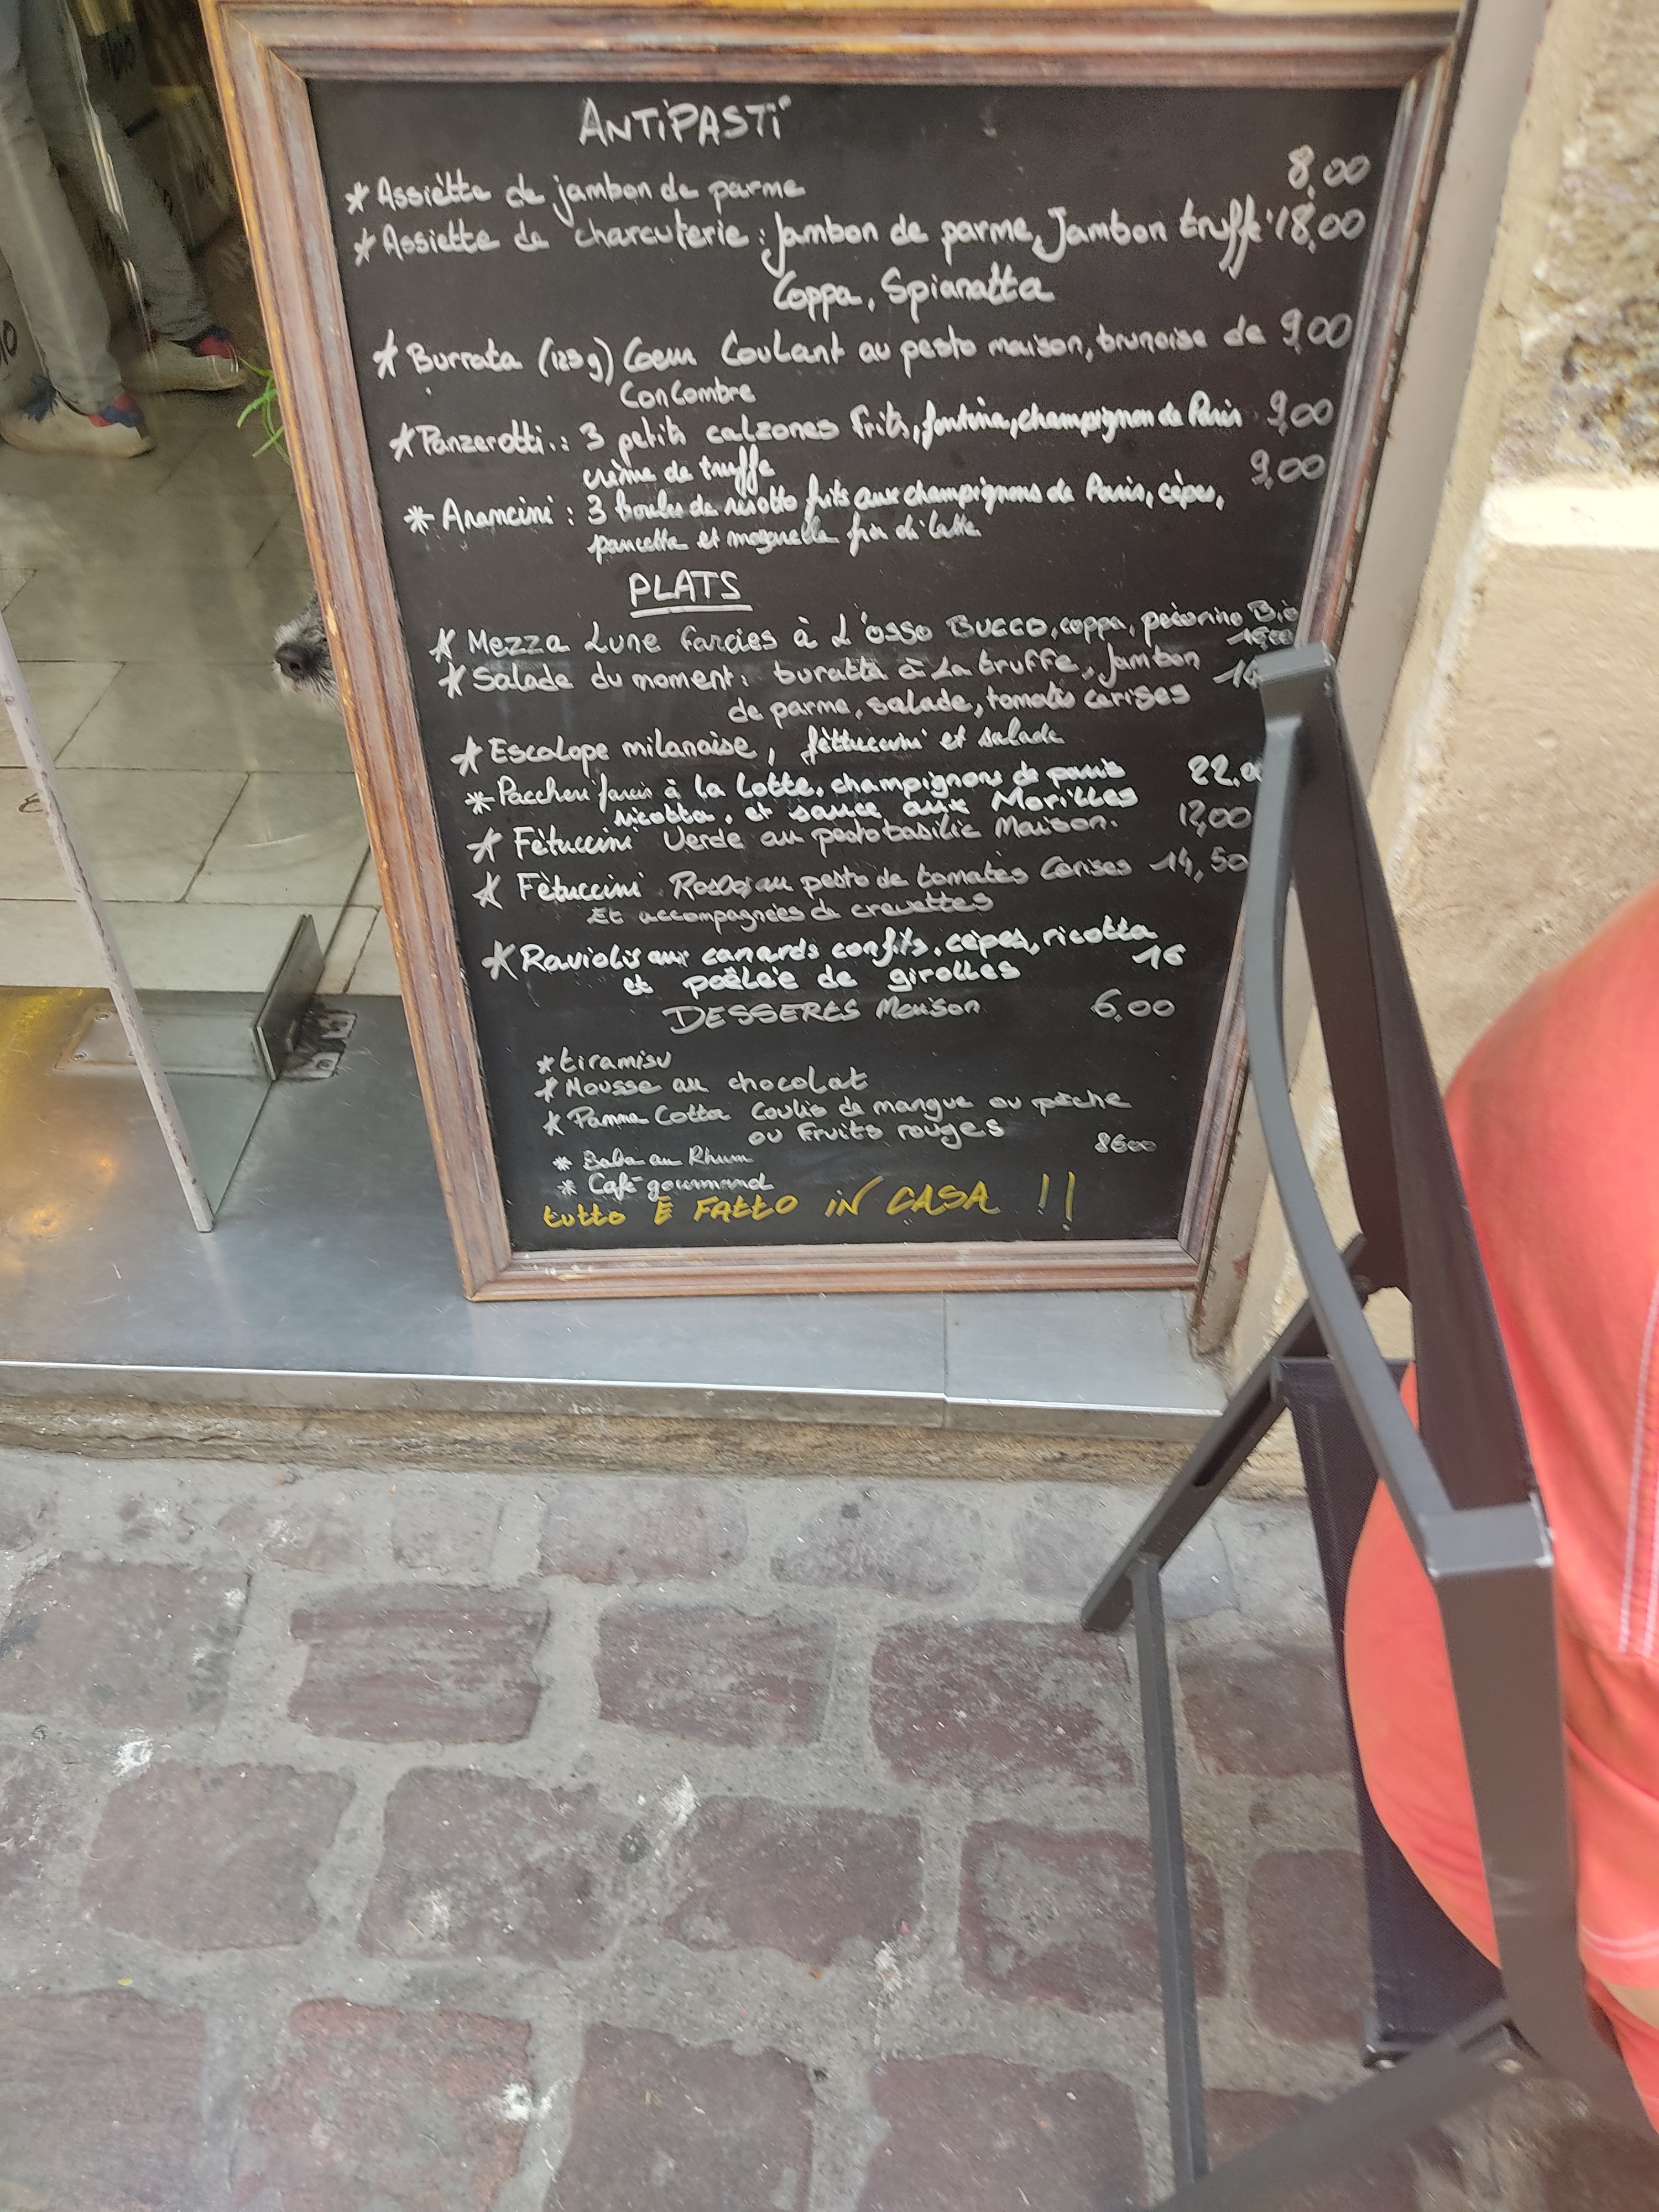 ANTIPASTI
* Assiètte de jambon de parme 8,00
* Assiette de charcuterie : Jambon de parme, Jambon truffe 18,00
Coppa, Spianatta
* Burrata (125g) Coeur Coulant au pesto maison, brunoise de 9,00
ConCombre
* Panzerotti : 3 petits calzones frits, fontina, champignon de Paris 9,00
crème de truffe
9,00
* Arancini : 3 boules de risotto frits aux champignons de Paris, cèpes,
pancetta et mozzarella fior di latte
PLATS
* Mezza Lune farcies à L'osso BUCCO, coppa, pecorino Bio
* Salade du moment : buratta à La truffe, Jambon
de parme, salade, tomates cerises
* Escalope milanaise, fèttuccini et salade
* Paccheri farcis à la Lotte, champignons de paris 22,0
ricotta, et sauce aux Morilles
* Fètuccini Verde au pesto basilic Maison. 12,00
* Fètuccini Rosso au pesto de tomates Cerises 14,50
Et accompagnées de crevettes
* Raviolis aux canards confits, cèpes, ricotta
et poêlée de girolles 16
DESSERTS Maison 6,00
* tiramisu
* Mousse au chocolat
* Panna Cotta Coulis de mangue ou pêche
ou Fruits rouges
* Baba au Rhum
* Café gourmand
tutto È FATTO IN CASA !!